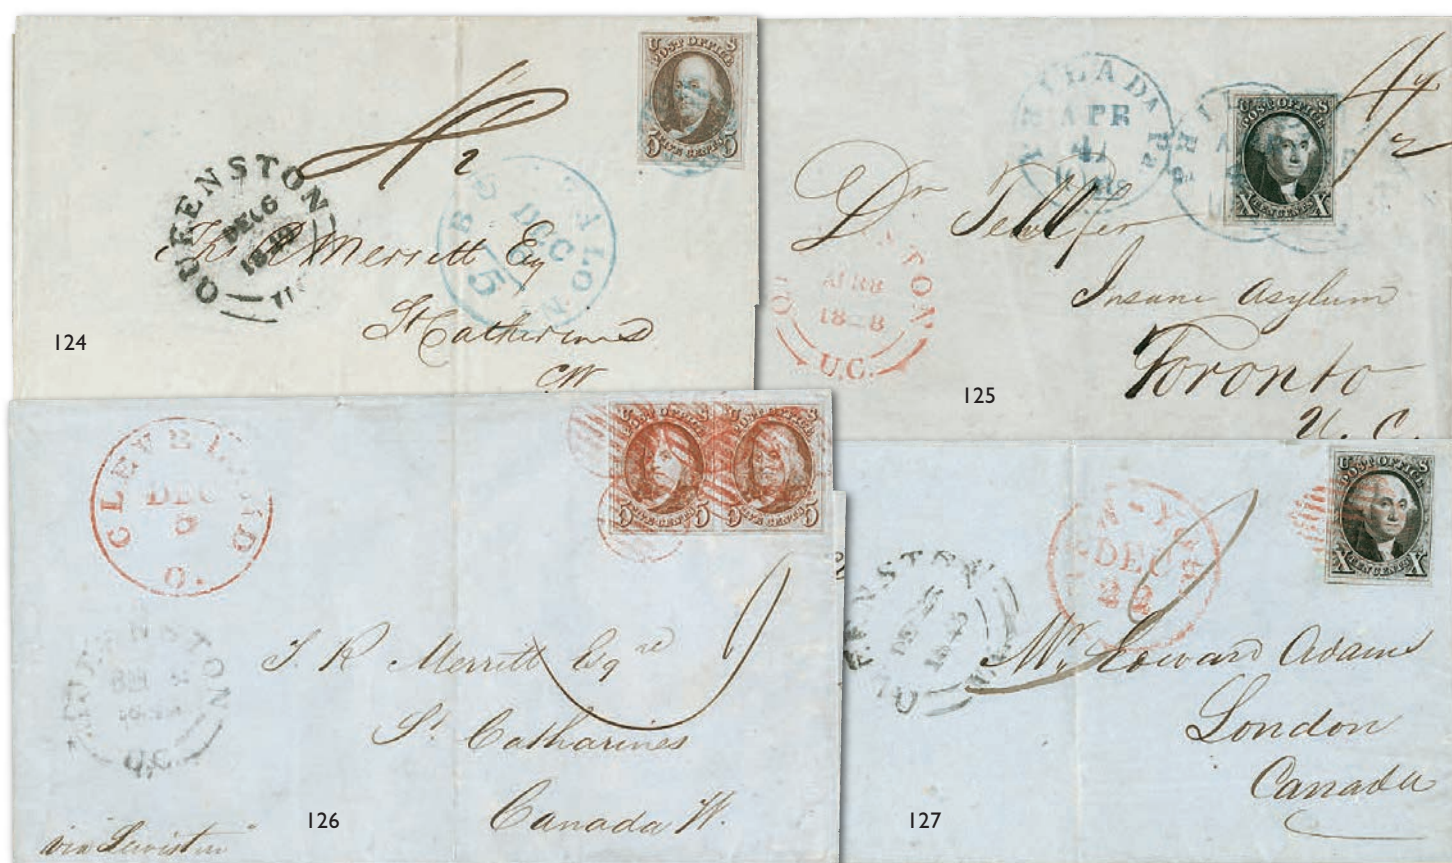 U S
POST OFFICE
5 FIVE CENTS 5
4½
QUEENSTON
DEC 6
Merritt Esq
BUFFALO N
DEC
5
St Catherines
CW
124
PHILADA Pa
APR
4
10 cts
U S
POST OFFICE
X TEN CENTS X
4½
Dr Telfer
Insane Asylum
Toronto
U. C.
APR 8
1848
U.C.
125
CLEVELAND
DEC
O.
U S
POST OFFICE
5 FIVE CENTS 5
U S
POST OFFICE
5 FIVE CENTS 5
QUEENSTON
U.C.
J. R Merritt Esqre
St Catharines
Canada W.
via Lewiston
126
NEW-YORK
DEC
22
U S
POST OFFICE
X TEN CENTS X
QUEENSTON
Mr Edward Adams
London
Canada
127